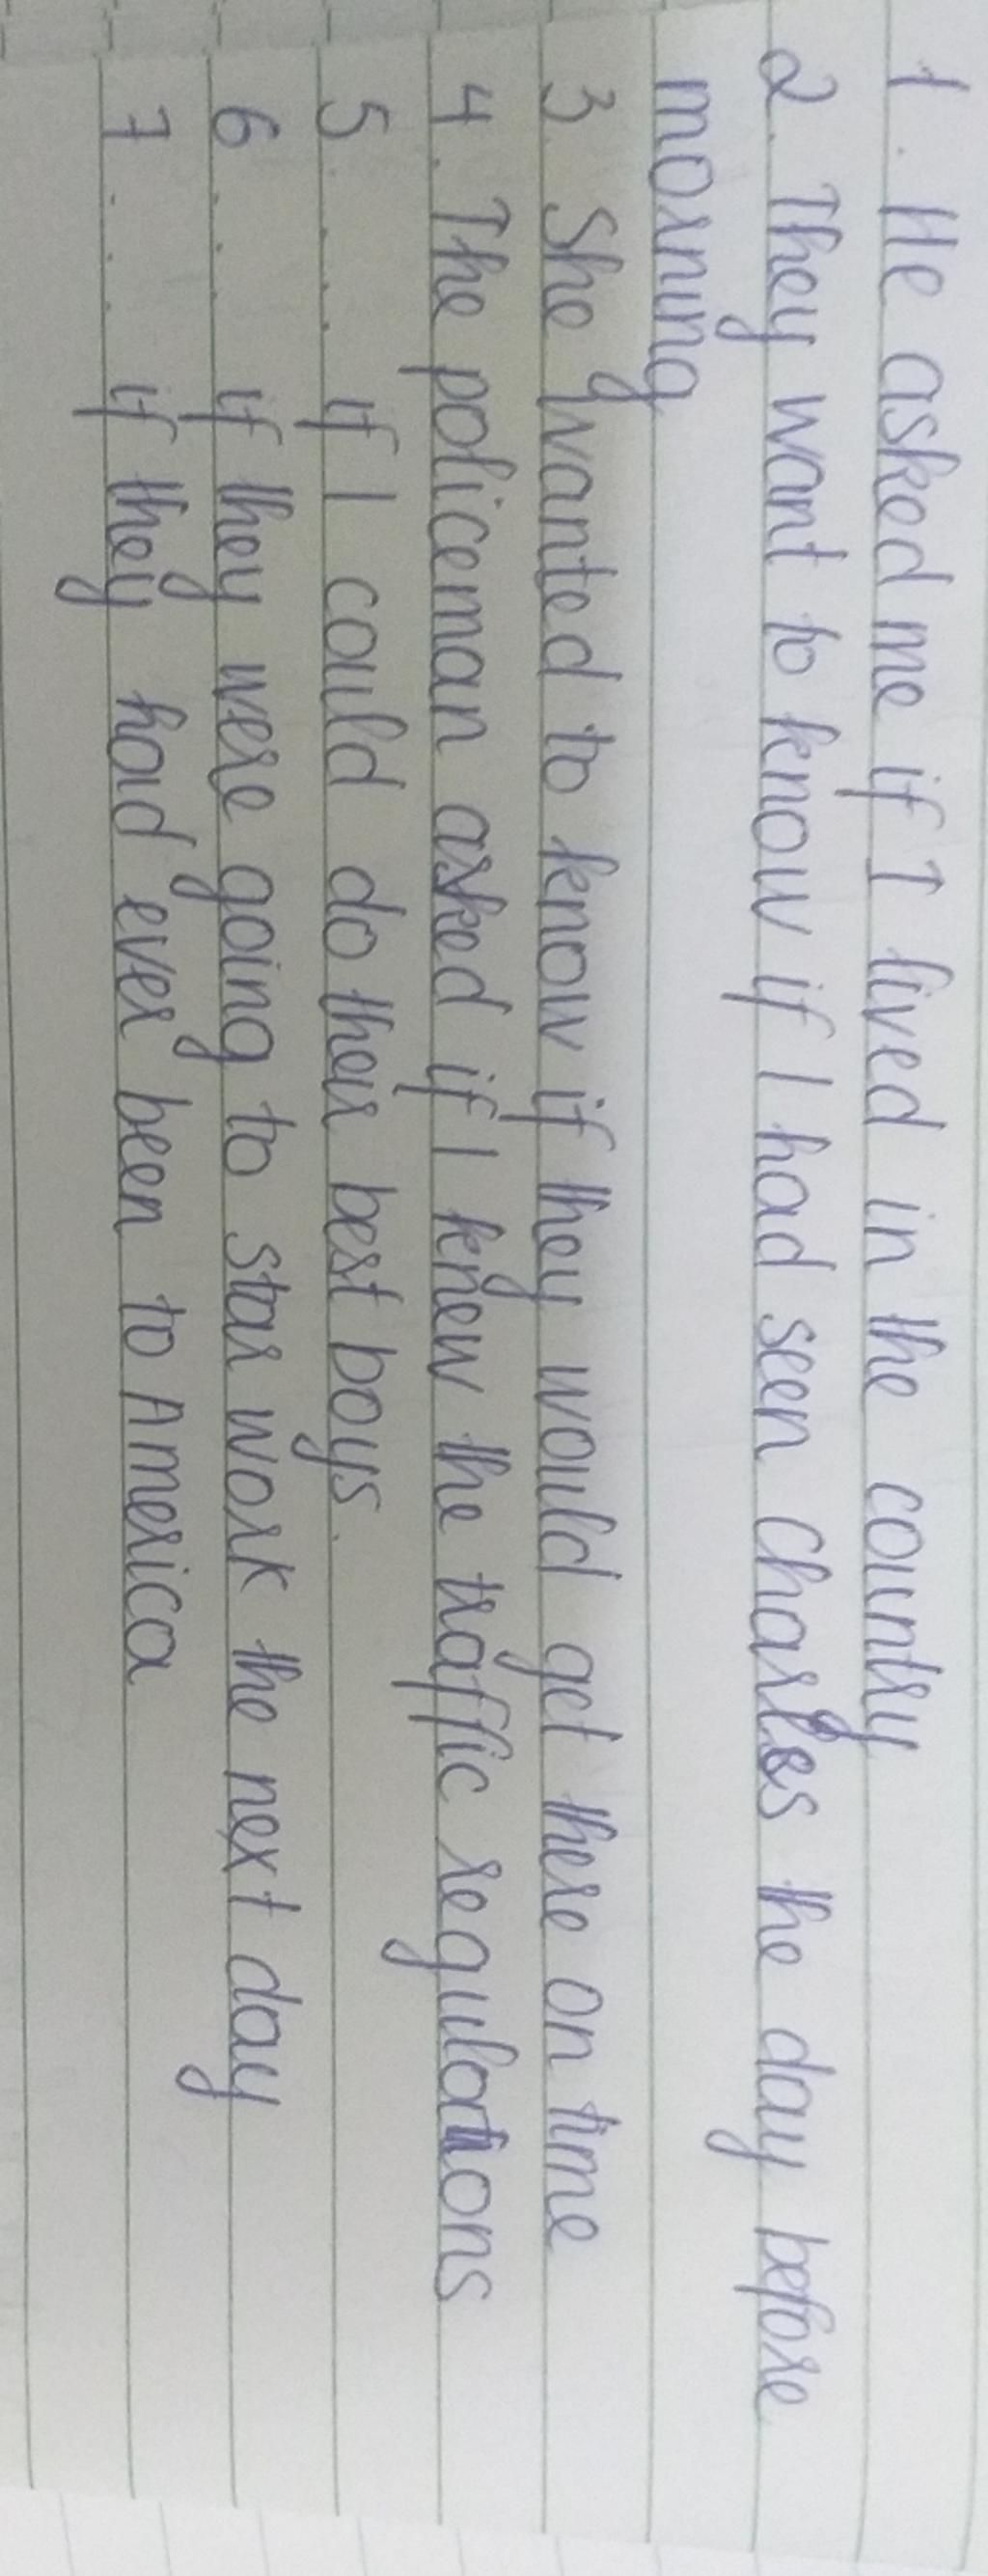 1. He asked me if I lived in the country
2. They want to know if I had seen Charles the day before
morning
3. She wanted to know if they would get there on time
4. The policeman asked if I knew the traffic regulations
5 .... if I could do their best boys.
6 .... if they were going to star work the next day
7 .... if they had ever been to America